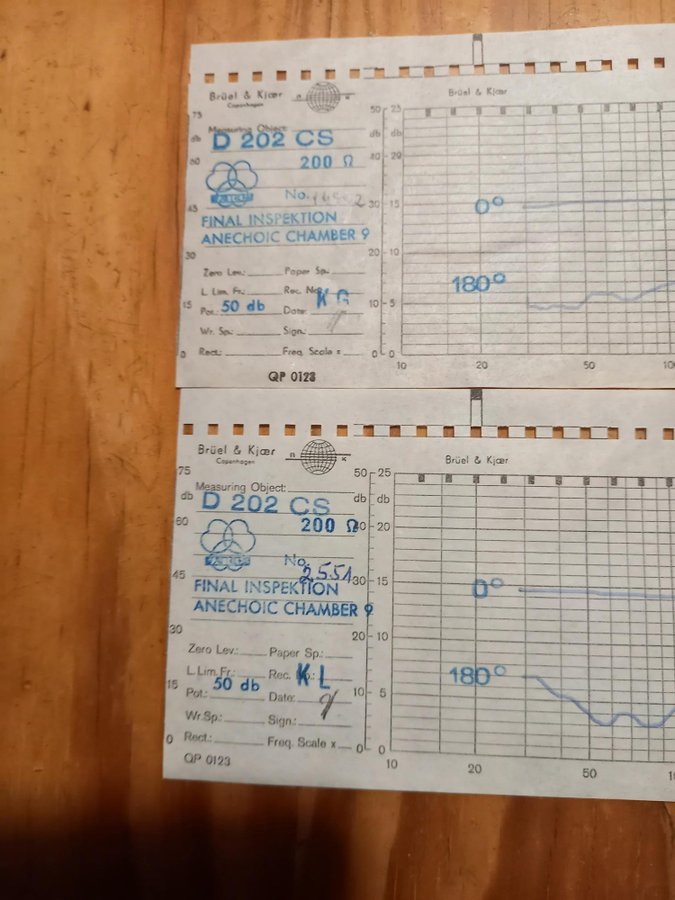 Brüel & Kjær
Copenhagen
Brüel & Kjær
Measuring Object:
D 202 CS
200 Ω
No.
FINAL INSPEKTION
ANECHOIC CHAMBER 9
Zero Lev.: Paper Sp.:
L. Lim. Fr.: Rec. No.: K G
Pot.: 50 db Date:
Wr. Sp.: Sign.:
Rect.: Freq. Scale x
QP 0123
75
db
60
45
30
15
0
50 25
db db
40 20
30 15
20 10
10 5
0 0
0°
180°
10 20 50
Brüel & Kjær
Copenhagen
Brüel & Kjær
Measuring Object:
D 202 CS
200 Ω
No. 2551
FINAL INSPEKTION
ANECHOIC CHAMBER 9
Zero Lev.: Paper Sp.:
L. Lim. Fr.: Rec. No.: K L
Pot.: 50 db Date:
Wr. Sp.: Sign.:
Rect.: Freq. Scale x
QP 0123
75
db
60
45
30
15
0
50 25
db db
40 20
30 15
20 10
10 5
0 0
0°
180°
10 20 50